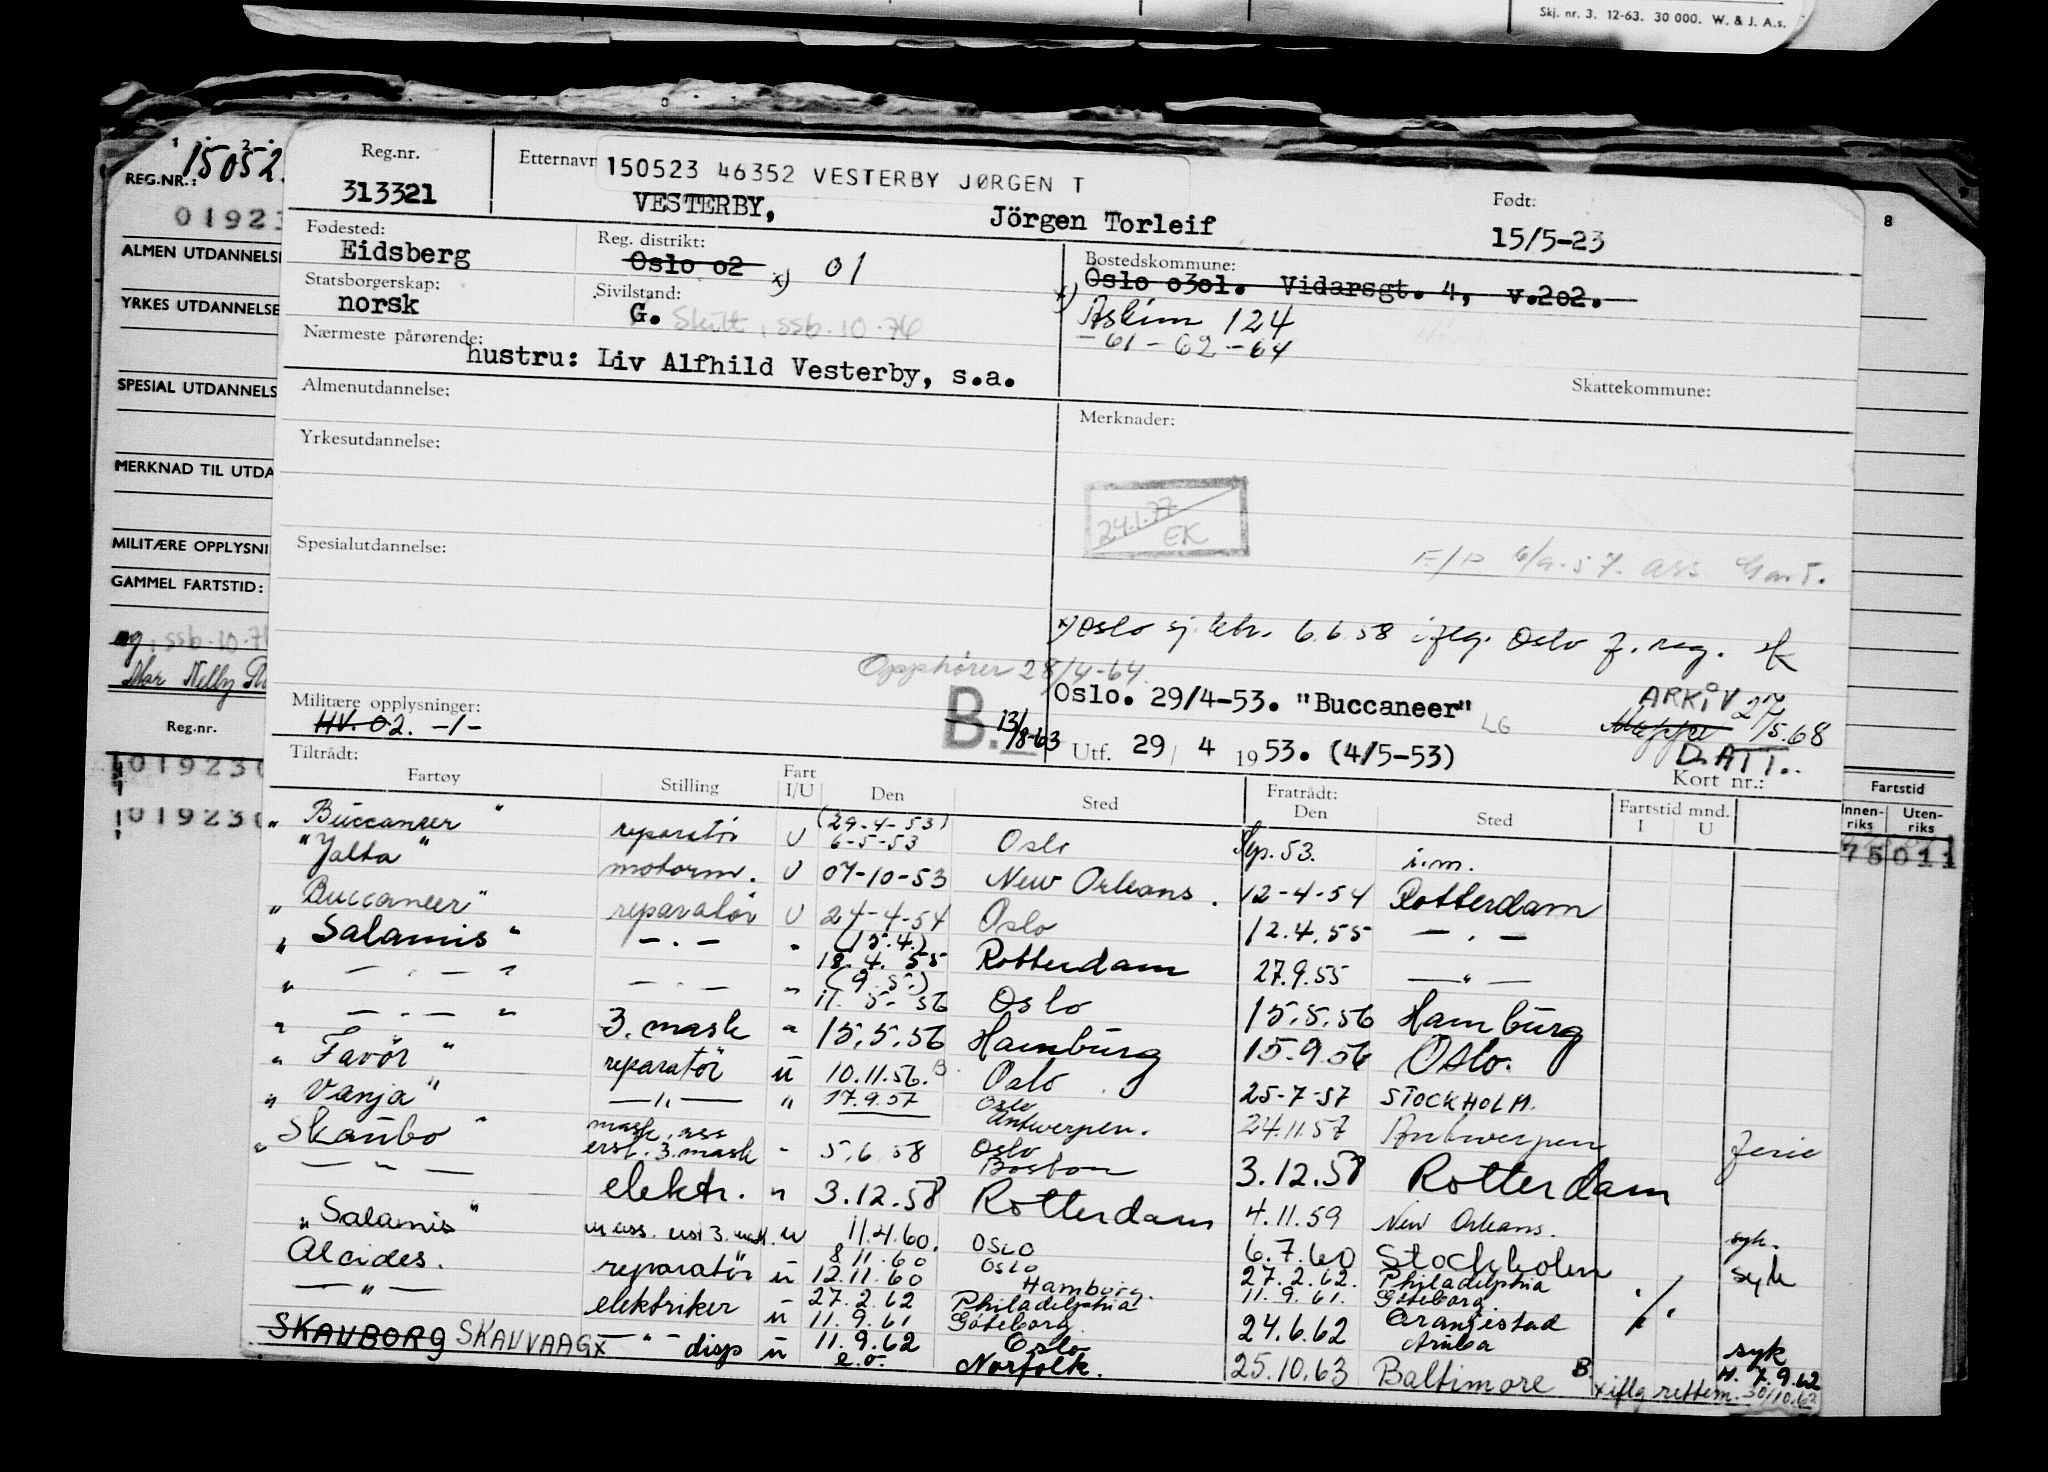 Skj. nr. 3. 12-63. 30 000. W. & J. A.s.
REG.NR.: 15052
01923
ALMEN UTDANNELSE
YRKES UTDANNELSE
SPESIAL UTDANNELS
MERKNAD TIL UTDA
MILITÆRE OPPLYSNI
GAMMEL FARTSTID:
ssb.10.7
Nelly
Reg.nr.
019230
019230
8
Fartstid
Innen-riks Uten-riks
75011
Reg.nr. 313321
Etternavn
150523 46352 VESTERBY JØRGEN T
VESTERBY, Jörgen Torleif
Født: 15/5-23
Fødested: Eidsberg
Reg. distrikt: Oslo 02 x) 01
Bostedskommune: Oslo 0301. Vidarsgt. 4, v.202.
x) Askim 124
-61-62-64
Statsborgerskap: norsk
Sivilstand: G. Skilt, ssb.10.76
Nærmeste pårørende: hustru: Liv Alfhild Vesterby, s.a.
Skattekommune:
Almenutdannelse:
Merknader:
Yrkesutdannelse:
24-1-77 EK
Spesialutdannelse:
F/P 6/9-57. ass
x) Oslo sj. ktr. 6.6.58 iflg. Oslo f. reg.
Opphører 28/4-64.
Oslo. 29/4-53. "Buccaneer" LG
ARKIV 27/5.68
Mappe
D. ATT..
Militære opplysninger: HV. 02. -1-
B. 13/8-63
Utf. 29/4 1953. (4/5-53)
Kort nr.:
Tiltrådt: Fartøy Stilling Fart I/U Den Sted Fratrådt: Den Sted Fartstid mnd. I U
"Buccaneer" reparatör U (29-4-53) 6-5-53 Oslo Sep. 53. i.m.
"Jalta" motorm. U 07-10-53 New Orleans. 12-4-54 Rotterdam
Buccaneer" reparatör U 24-4-54 Oslo 12.4.55 — . —
"Salamis" — . — " (15.4.) 18.4.55 Rotterdam 27.9.55 — " —
" — . — " — . — " (9.5.) 11.5.56 Oslo 15.5.56 Hamburg
" — . — " 3. mask " 15.5.56 Hamburg 15.9.56 Oslo.
" Favör " reparatör u 10.11.56. Oslo 25-7-57 STOCKHOLM.
" Vanja" — " — " 17.9.57 Oslo Antwerpen. 24.11.57 Antwerpen ferie
" Skaubo " mask. ass erst. 3. mask " 5.6.58 Oslo Boston 3.12.58 Rotterdam
" — " — elektr. " 3.12.58 Rotterdam 4.11.59 New Orleans. syk.
"Salamis" m ass. erst 3. mask. u 11.4.60. Oslo 6.7.60 Stockholm syk
Alcides. reparatör u 8.11.60 12.11.60 Oslo Hamborg. 27.2.62. Philadelphia 11.9.61. Göteborg.
— " — elektriker u 27.2.62 11.9.61 Philadelphia Göteborg 24.6.62 Oranjestad Aruba syk
SKAUBORG SKAUVAAG x — " — disp u 11.9.62 e.o. Oslo Norfolk. 25.10.63 Baltimore B. H. 7.9.62
x iflg rettem. 30/10.62